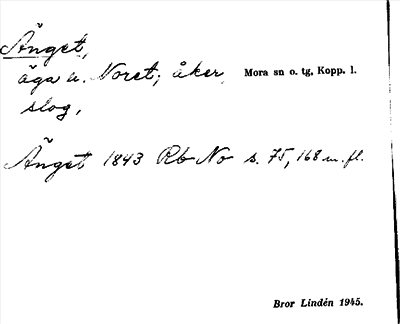 Änget,
äga u. Noret; åker, Mora sn o. tg, Kopp. l.
slog,
Änget 1843 Rb No s. 75, 168 m. fl.
Bror Lindén 1945.